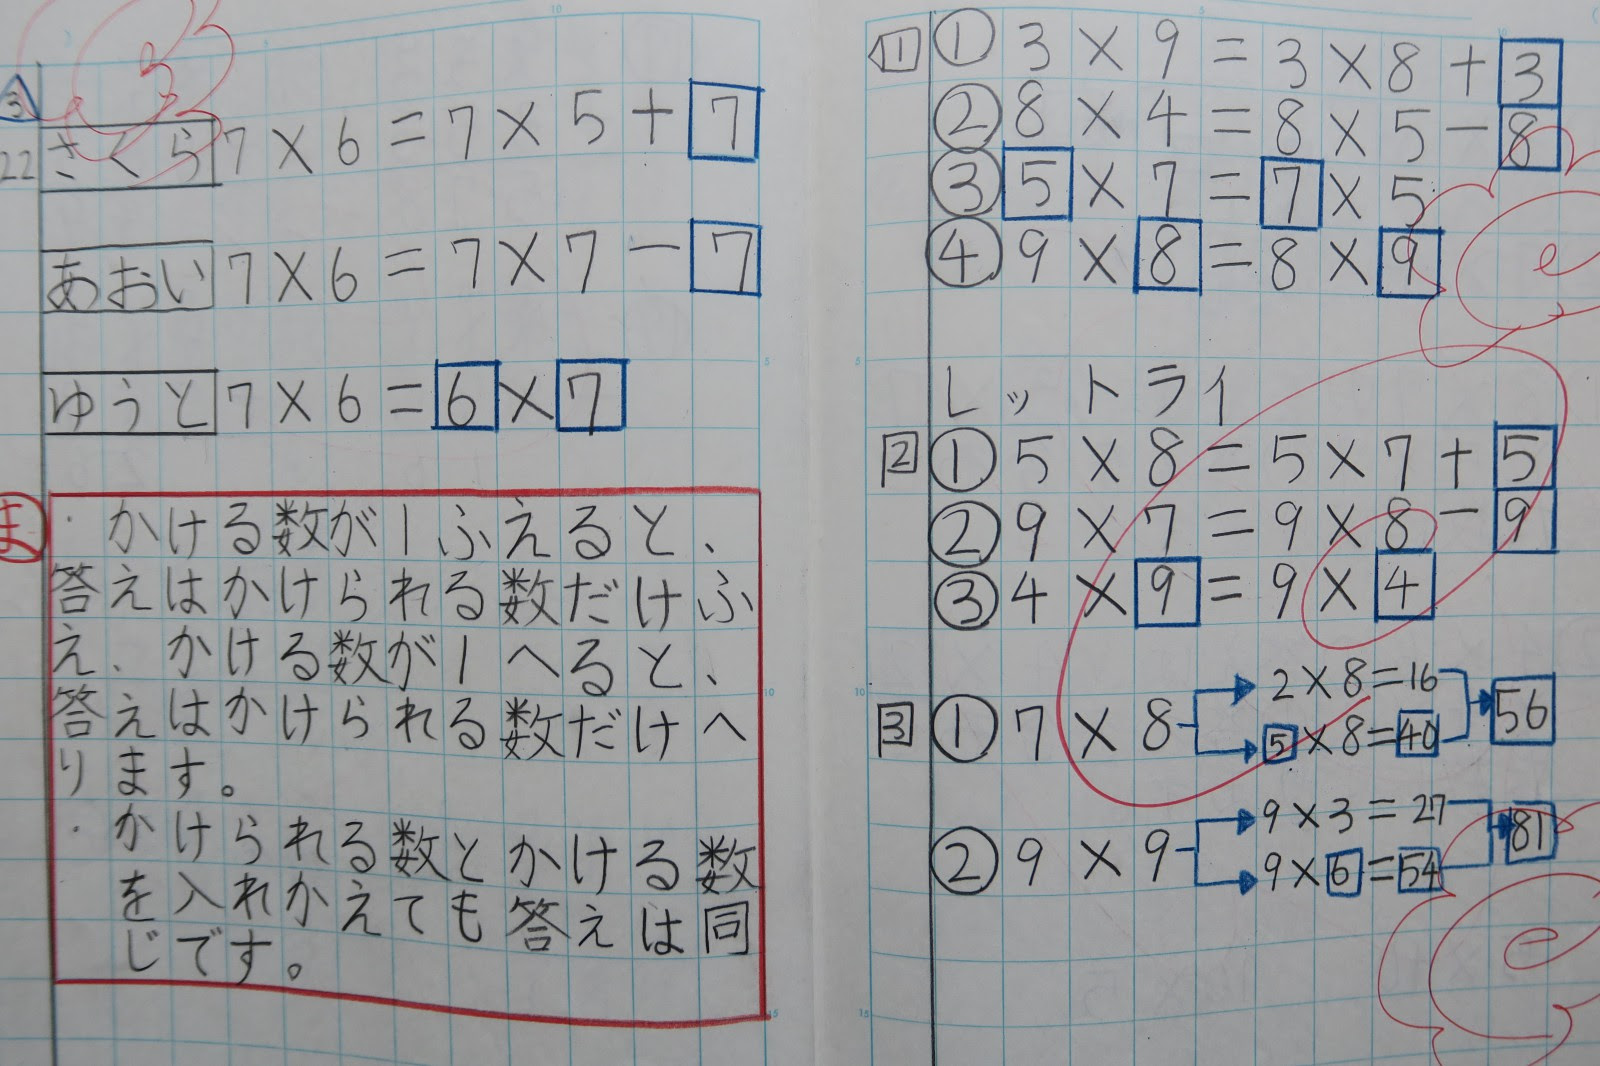 3
22
さくら 7×6=7×5+7
あおい 7×6=7×7-7
ゆうと 7×6=6×7
ま
・かける数が1ふえると、
答えはかけられる数だけふ
え、かける数が1へると、
答えはかけられる数だけへ
ります。
・かけられる数とかける数
を入れかえても答えは同
じです。
1 ① 3×9=3×8+3
② 8×4=8×5-8
③ 5×7=7×5
④ 9×8=8×9
レットライ
2 ① 5×8=5×7+5
② 9×7=9×8-9
③ 4×9=9×4
3 ① 7×8 2×8=16 56
5×8=40
② 9×9 9×3=27 81
9×6=54